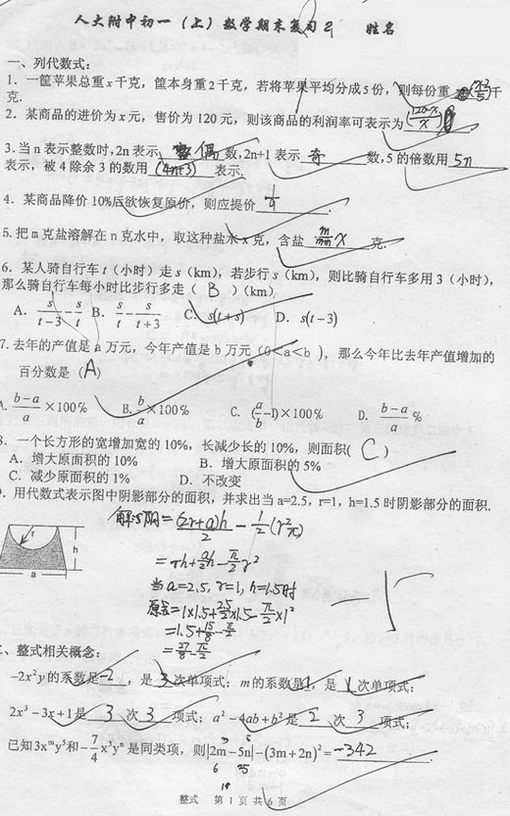 人大附中初一（上）数学期末复习2 姓名
一、列代数式：
1. 一筐苹果总重x千克，筐本身重2千克，若将苹果平均分成5份，则每份重 (x-2/5)千
克.
2. 某商品的进价为x元，售价为120元，则该商品的利润率可表示为(120-x/x)
3. 当n表示整数时,2n表示 偶 数,2n+1表示 奇 数,5的倍数用 5n
表示，被4除余3的数用 (4n+3) 表示.
4. 某商品降价10%后欲恢复原价，则应提价 1/9 .
5. 把m克盐溶解在n克水中，取这种盐水x克，含盐 m/m+n x 克.
6. 某人骑自行车t（小时）走s（km），若步行s（km），则比骑自行车多用3（小时），
那么骑自行车每小时比步行多走（ B ）（km）
A. s/t-3 - s/t B. s/t - s/t+3 C. s(t+s) D. s(t-3)
7. 去年的产值是a万元，今年产值是b万元（0<a<b），那么今年比去年产值增加的
百分数是（A）
A. b-a/a ×100% B. b/a ×100% C. (a/b -1)×100% D. b-a/a %
8. 一个长方形的宽增加宽的10%，长减少长的10%，则面积( C )
A. 增大原面积的10% B. 增大原面积的5%
C. 减少原面积的1% D. 不改变
9. 用代数式表示图中阴影部分的面积，并求出当a=2.5, r=1, h=1.5时阴影部分的面积.
解:S阴= (2r+a)h/2 - 1/2(r²π)
r
h
a
= rh+ ah/2 - π/2 r²
当a=2.5, r=1, h=1.5时
原式=1×1.5+ 2.5/2 ×1.5- π/2 ×1²
=1.5+ 15/8 - π/2
= 27/8 - π/2
二、整式相关概念：
-2x²y的系数是 -2 ，是 3 次单项式；m的系数是 1 ，是 1 次单项式；
2x³-3x+1是 3 次 3 项式；a²-4ab+b²是 2 次 3 项式；
已知3xᵐy⁵和-7/4 x³yⁿ是同类项，则|2m-5n|-(3m+2n)²= -342 .
6 25
19
整式 第1页共6页